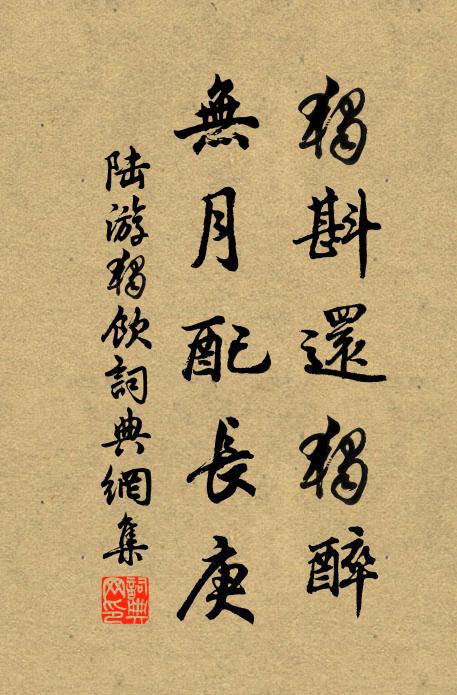 獨斟還獨醉
無月配長庚
陸游獨飲詞典網集
詞典網印